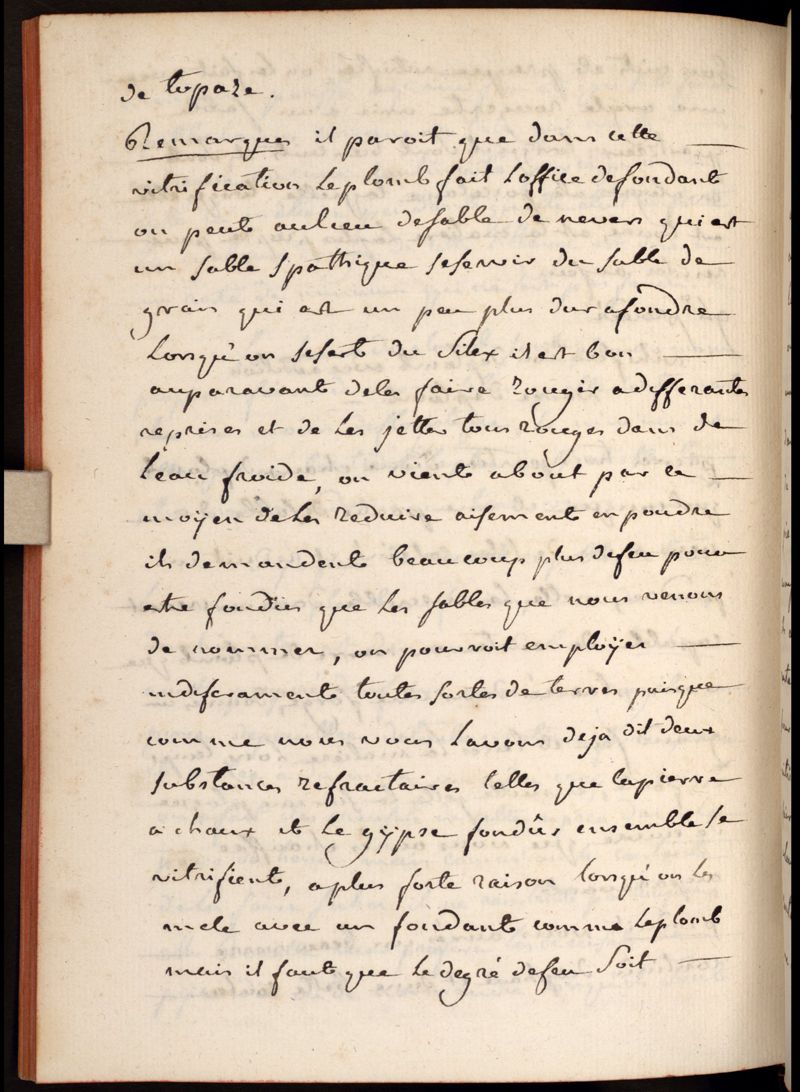 de topaze.
Remarques il paroit que dans cette
vitrification le plomb fait l'office defondant
on peut aulieu desable de nevers qui est
un sable spathique seservir du sable de
grais qui est un peu plus dur afondre
Lorsqu'on sesert du silex il est bon
auparavant deles faire rougir adifferantes
reprises et de les jetter tous rouges dans de
l'eau froide, on vient about par ce
moÿen deles reduire aisement en poudre
ils demandent beaucoup plus defeu pour
estre fondus que les sables que nous venons
de nommer, on pourroit emploÿer
indiferament toutes sortes de terres puisque
comme nous vous lavons deja dit deux
substances refractaires telles que lapierre
a chaux et le gÿpse fondûs ensemble se
vitrifient, aplus forte raison lorsqu'on les
mele avec un fondant comme leplomb
mais il faut que le degré defeu soit